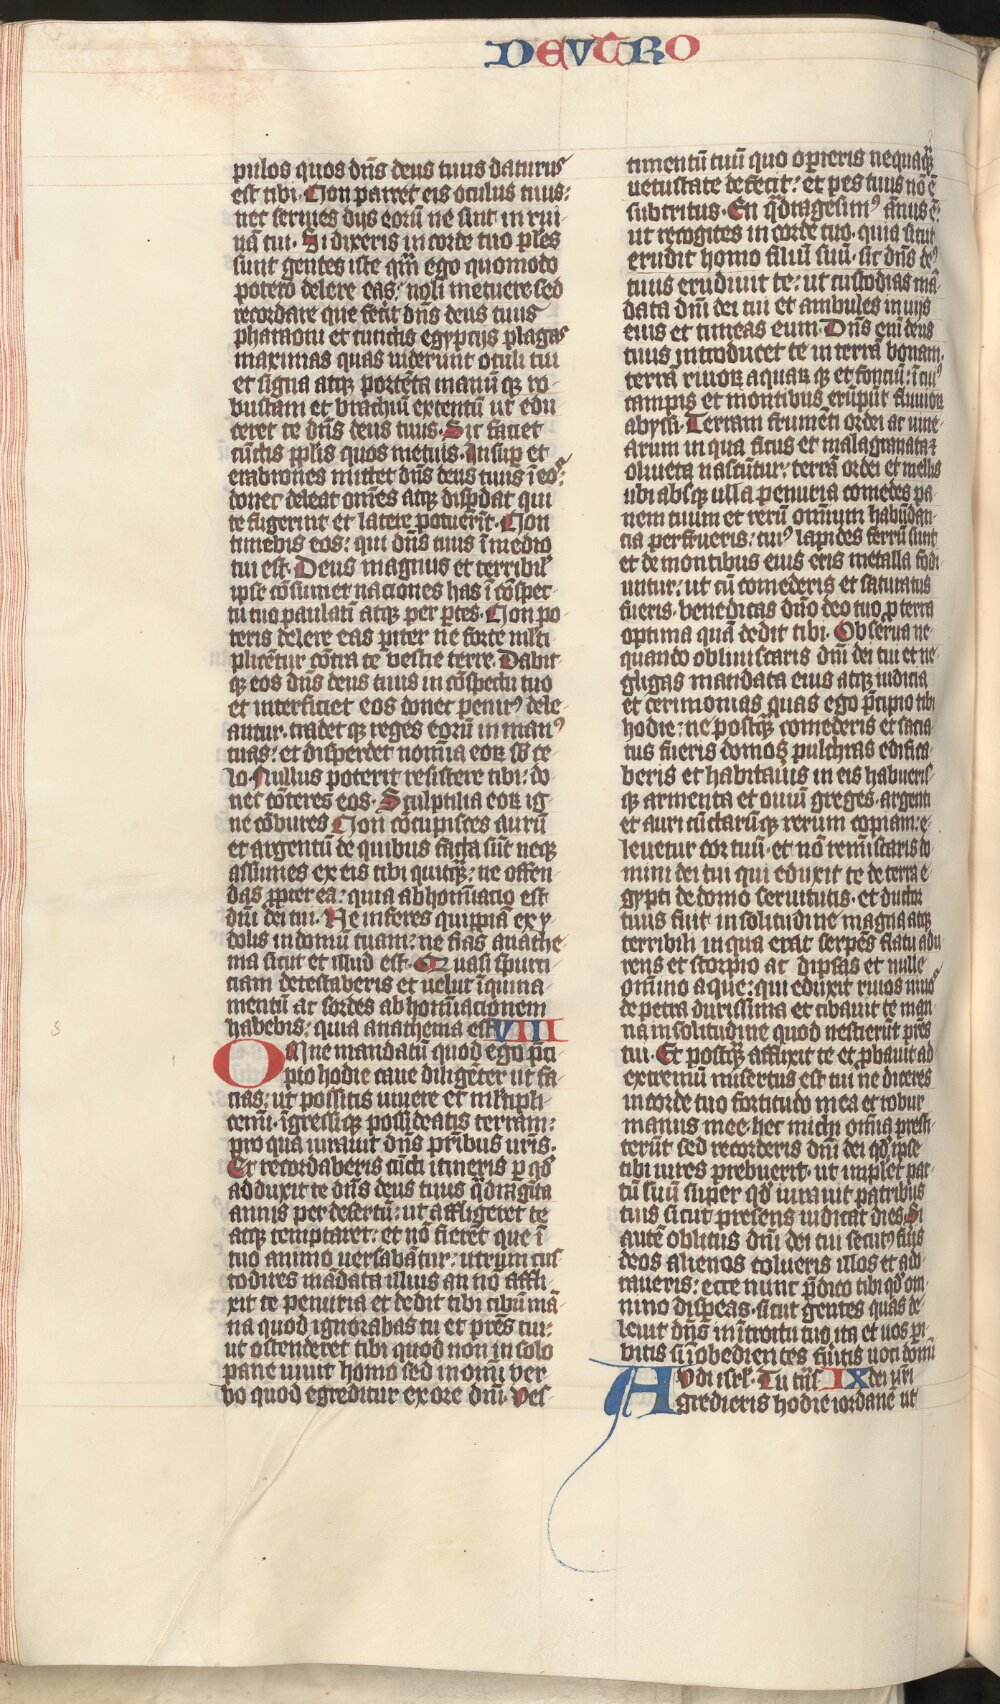 DEVTRO
pulos quos dn̄s deus tuus daturꝰ
est tibi. Non parcet eis oculus tuus:
nec seruies dijs eorū ne sint in rui
nā tui. Si dixeris in corde tuo plēs
sunt gentes iste q̄m ego quomodo
potero delere eas: noli metuere sed
recordare que fecit dn̄s deus tuus
pharaoni et cunctis egyptijs plagas
maximas quas uiderunt oculi tui
et signa atqꝫ portēta manūqꝫ ro
bustam et brachiū extentū ut edu
ceret te dn̄s deus tuus. Sic faciet
cūctis pplīs quos metuis. Insup̄ et
crabrones mittet dn̄s deus tuus ī eoˢ:
donec deleat om̄es atqꝫ disp̄dat qui
te fugerint et latere potuerīt. Non
timebis eos: qui dn̄s tuus ī medio
tui est. Deus magnus et terribil̄
ipse cōsumet naciones has ī cōspec
tu tuo paulatī atqꝫ per p̄tes. Non po
teris delere eas p̄iter ne forte ml̄ti
plicētur cōtra te bestie terre. Dabit
qꝫ eos dn̄s deus tuus in cōspectu tuo
et interficiet eos donec penitꝰ dele
antur. tradet qꝫ reges eorū in manꝰ
tuas: et disperdet nomīa eoꝝ sb̄ ce
lo. Nullus poterit resistere tibi: do
nec cōteres eos. Sculptilia eoꝝ ig
ne cōbures Non cōcupisces aurū
et argentū de quibus facta sūt neqꝫ
assumes ex eis tibi quicq̄ꝫ: ne offen
das ꝓpter ea: quia abhomīacio est
dn̄i dei tui. Ne inferes quippiā ex y
dolis in domū tuam: ne fias anathe
ma sicut et illud est. Quasi spurci
ciam detestaberis et uelut īquina
mentū ac sordes abhomīacionem
habebis: quia anathema est. VIII
Omne mandatū quod ego p̄ci
pio hodie caue diligēter ut fa
cias: ut possitis uiuere et ml̄tipli
cemī. īgressiqꝫ possideatis terram:
pro qua iurauit dn̄s pr̄ibus ur̄is.
Et recordaberis cūcti itineris p qd̄
adduxit te dn̄s deus tuus q̄dragīta
annis per desertū: ut affligeret te
atqꝫ temptaret: et nō fierēt que ī
tuo animo uersabātur: utrum cus
todires mādata illius an nō affli
xit te penuria et dedit tibi cibū mā
na quod ignorabas tu et pr̄es tui:
ut ostenderet tibi quod non in solo
pane uiuit homo sed in omni ver
bo quod egreditur ex ore dn̄i. Ves
timentū tuū quo operieris nequaq̄
uetustate defecit: et pes tuus nō ē
subtritus. En q̄dragesimꝰ ānus ē:
ut recogites in corde tuo. quia sicut
erudit homo filiū suū. sic dn̄s deꝰ
tuus erudiuit te: ut custodias mā
data dn̄i dei tui et ambules in uijs
eius et timeas eum. Dn̄s em̄ deus
tuus introducet te in terrā bonam.
terrā riuoꝝ aquaꝝ qꝫ et fonciū: ī cuiꝰ
campis et montibus erūpūt fluuioꝝ
abyssi. Terram frumēti ordei ac uine
arum in qua ficus et malagranata ⁊
oliueta nascūtur. terrā ordei et mellis
ubi absqꝫ ulla penuria comedes pa
nem tuum et rerū omnium habūdan
cia perfrueris: cuiꝰ lapides ferrū sunt
et de montibus eius eris metalla fodi
untur: ut cū comederis et saturatus
fueris. benedicas dn̄o deo tuo ꝓ terra
optima quā dedit tibi. Obserua ne
quando obliuiscaris dn̄i dei tui et ne
gligas mandata eius atqꝫ iudicia
et cerimonias quas ego p̄cipio tibi
hodie: ne postq̄ꝫ comederis et sacia
tus fueris domos pulchras edifica
beris et habitaūis in eis habueris
qꝫ armenta et ouiū greges. argenti
et auri cūctarūqꝫ rerum copiam: e
leuetur cor tuū. et nō remīscaris do
mini dei tui qui eduxit te de terra e
gypti de domo seruitutis. et ductor
tuus fuit in solitudine magna atqꝫ
terribili in qua erat serpēs flatu adu
rens et scorpio ac dipsas et nulle
omīno aque: qui eduxit riuos
de petra durissima et cibauit te man
na in solitudine quod nescierūt pr̄es
tui. Et postq̄ꝫ afflixit te et ꝓbauit ad
extremū misertus est tui ne diceres
in corde tuo fortitudo mea et robur
manus mee. hec michi om̄ia presti
terūt sed recorderis dn̄i dei qd̄ ipse
tibi uires prebuerit. ut impleret pac
tū suū super qd̄ iurauit patribus
tuis sicut presens iudicat dies. Si
autē oblitus dn̄i dei tui secutꝰ fūis
deos alienos colueris illos et ado
raueris: ecce nunc p̄dico tibi qd̄ om
nino dispeas. sicut gentes quas de
leuit dn̄s in ītroitu tuo ita et uos pi
bitis si īobedientes fūitis uoci domī
Audi isrl̄. Tu trās IX dei ur̄i
gredieris hodie iordanē ut